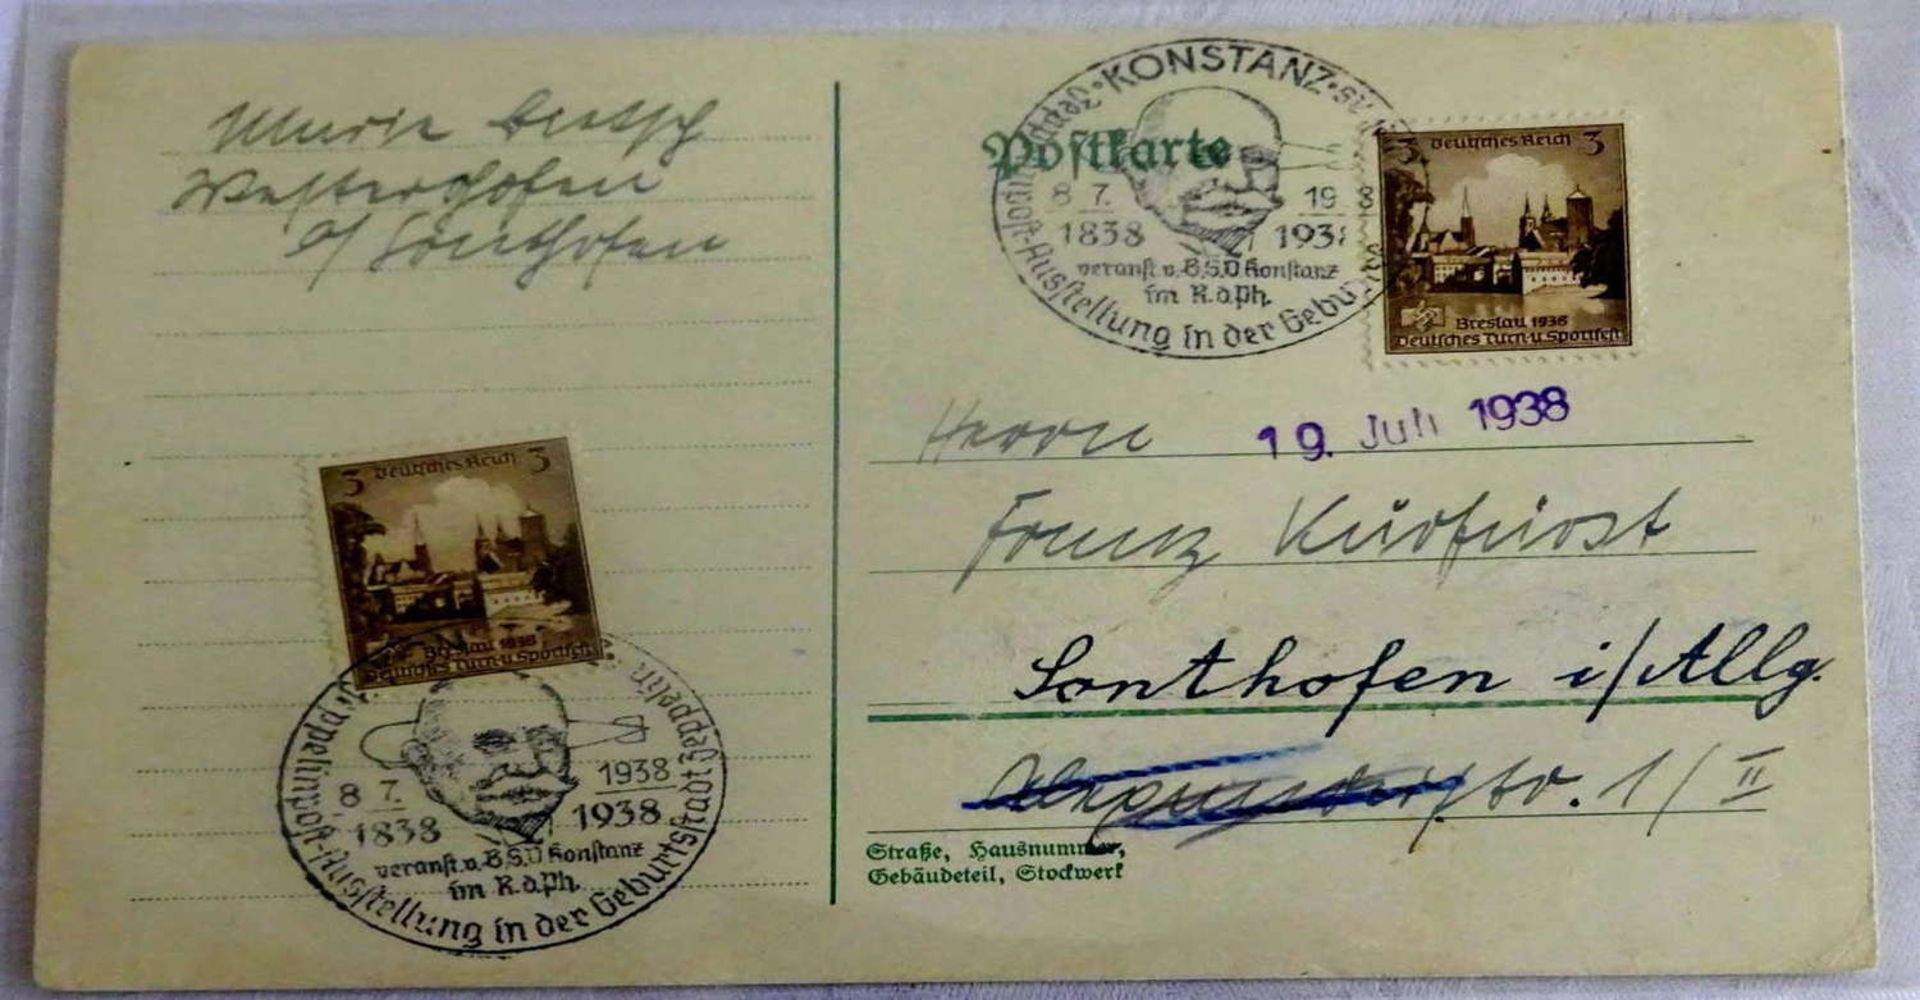 Marie Bertsch
Westerhofen
b/ Sonthofen
3 Deutsches Reich 3
Breslau 1938
Deutsches Turn-u. Sportfest
Zeppelinpost-Ausstellung in der Geburtsstadt Zeppelin
8. 7. 1938
1838 1938
veranst. v. B.S.V Konstanz
im R.d.Ph.
Postkarte
· KONSTANZ ·
Zeppelinpost-Ausstellung in der Gebu
8. 7. 19 8
1838 193
veranst. v. B.S.V Konstanz
im R.d.Ph.
3 Deutsches Reich 3
Breslau 1938
Deutsches Turn-u. Sportfest
Herrn 19. Juli 1938
Franz Kürfürst
Sonthofen i/Allg.
str. 1/II
Straße, Hausnummer,
Gebäudeteil, Stockwerk